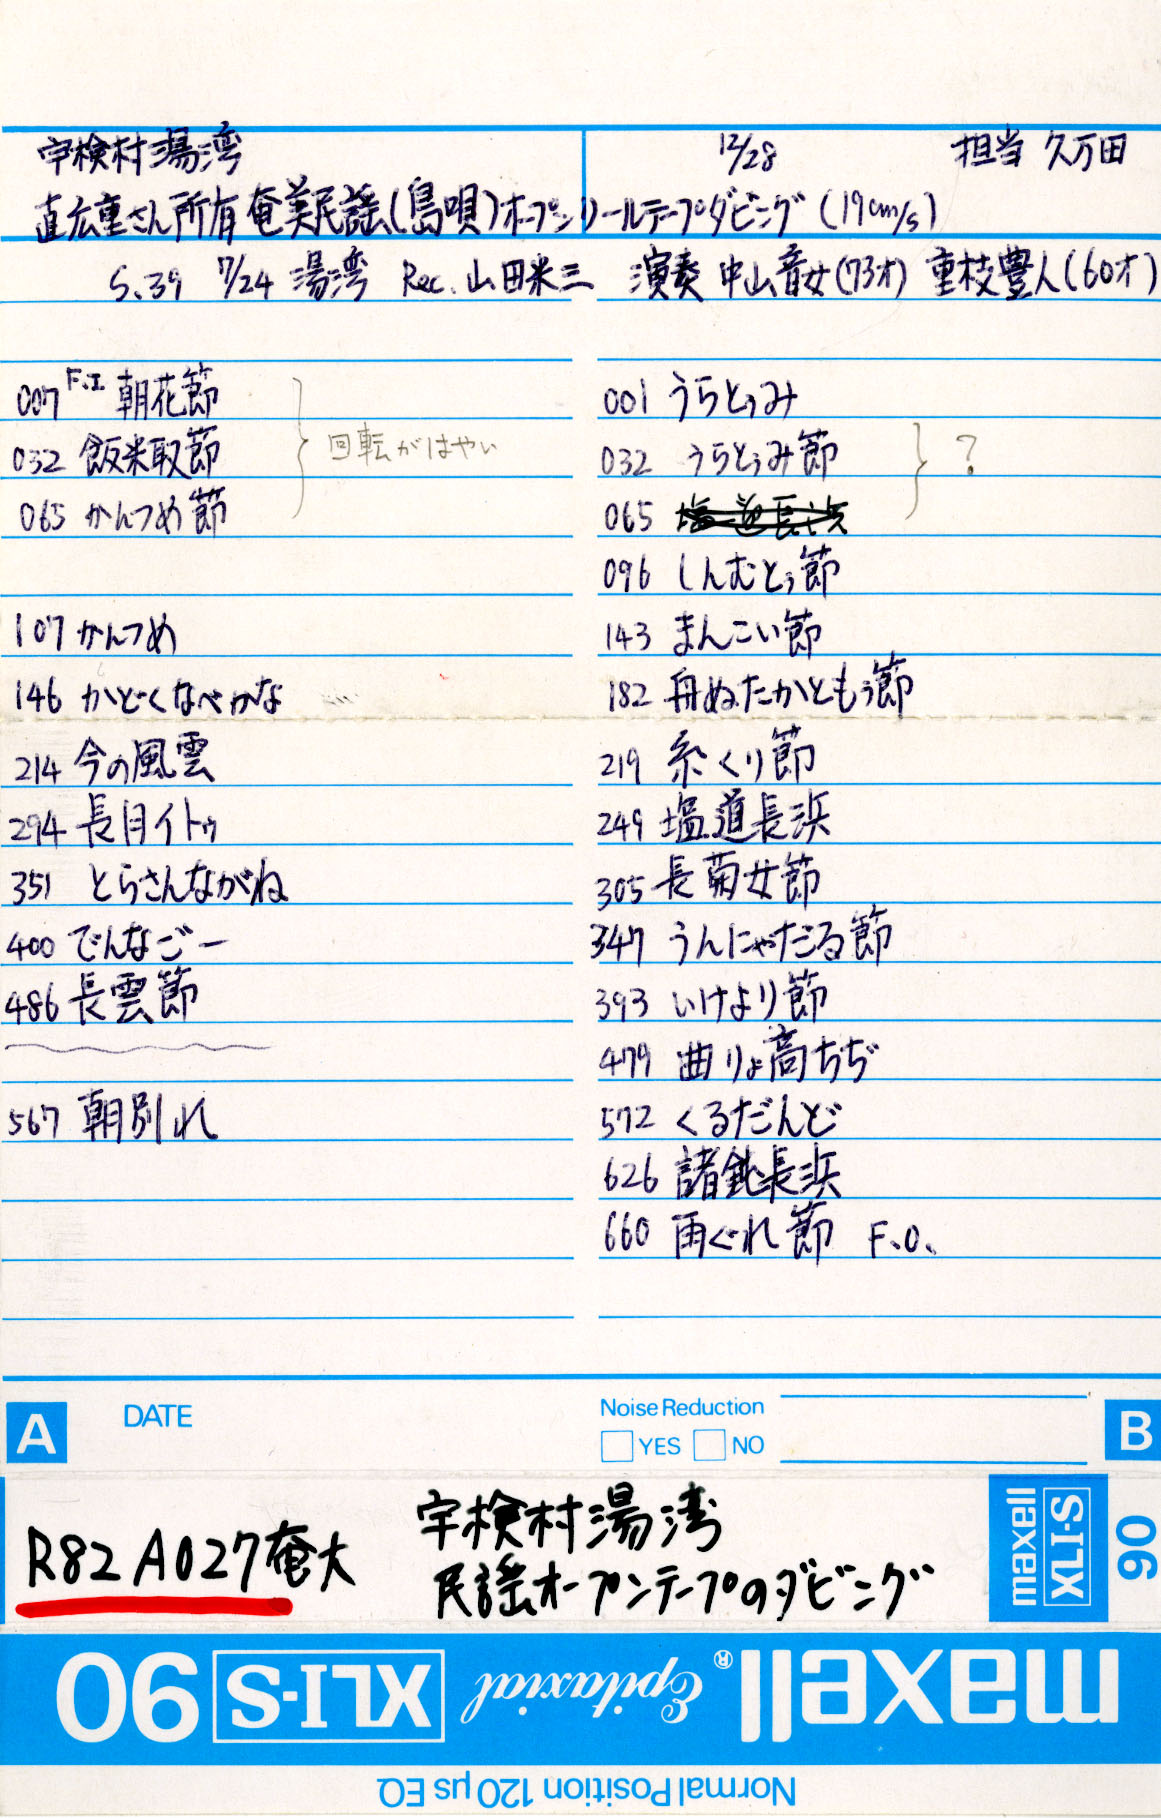 宇検村湯湾 12/28 担当 久万田
直広重さん所有 奄美民謡(島唄)オープンリールテープダビング (19cm/s)
S.39 7/24 湯湾 Rec. 山田米三 演奏 中山音女(73才) 重枝豊人(60才)
007 F.I. 朝花節
032 飯米取節
065 かんつめ節
回転がはやい
107 かんつめ
146 かどくなべかな
214 今の風雲
294 長月イトゥ
351 とらさんながね
400 でんなごー
486 長雲節
567 朝別れ
001 うらとぅみ
032 うらとぅみ節
?
065 塩道長浜
096 しんむとぅ節
143 まんこい節
182 舟ぬたかともぅ節
219 糸くり節
249 塩道長浜
305 長菊女節
347 うんにゃだる節
393 いけより節
479 曲りょ高ちぢ
572 くるだんど
626 諸鈍長浜
660 雨ぐれ節 F.O.
A DATE
Noise Reduction
YES NO
B
R82A027奄大
宇検村湯湾
民謡オープンテープのダビング
maxell
XLI-S
90
maxell® Epitaxial XLI-S 90
Normal Position 120 µs EQ